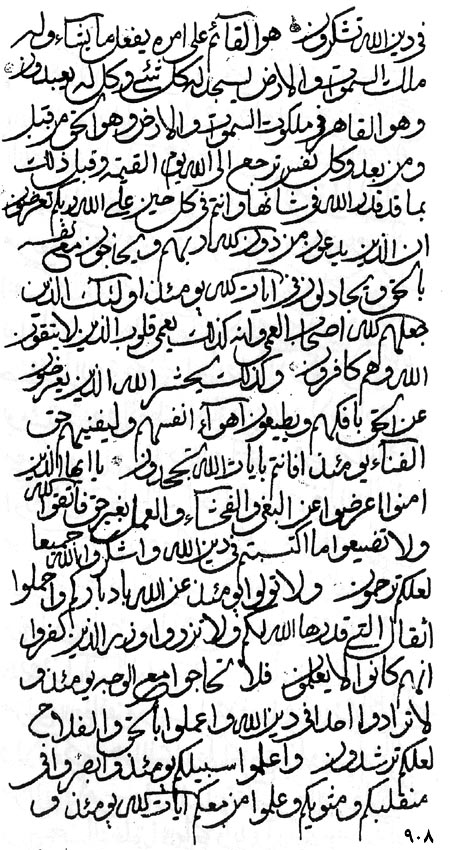 فى دين الله تشكرون ۞ هو القائم على امره يفعل ما يشاء وله
ملك السموات والارض يسجد له كل شئ وكل له يعبدون ۞
وهو القاهر فى ملكوت السموات والارض وهو الحق من قبل
ومن بعد وكل نفس ترجع الى الله يوم القيمة وقبل ذلك
بما قد قدر الله فى شانها وانتم فى كل حين على الله ربكم تعرضون
ان الذين يدعون من دون الله اربابهم ويحاجون مع نفسه
بالحق يجادلون فى ايات الله يومئذ اولئك الذين
جعلهم الله اصحاب العمى وانه كذلك يعمى قلوب الذين لا يتقون
الله وهم كافرون وكذلك يحشر الله الذين يعرضون
عن الحق بافكهم ويطيعون اهواء انفسهم وليفنيهم حق
الفناء يومئذ افانتم بايات الله تجحدون ۞ يا ايها الذين
امنوا اعرضوا عن البغى والفحشاء والعمل بغير حق فاتقوا الله
ولا تضيعوا ما اكتسبتم فى دين الله واشكروا الله جميعا
لعلكم ترحمون ولا تولوا يومئذ عن الله بادباركم واحملوا
اثقال التى قدرها الله لكم ولا تزروا وزر الذين كفروا
انهم كانوا لا يعلمون فلا تحاجوا مع الوجه يومئذ و
لا ترادوا احدا فى دين الله واعملوا بالحق والفلاح
لعلكم ترشدون واعلموا سبيلكم يومئذ وابصروا فى
منقلبكم ومثويكم وعلموا من معكم ايات الله يومئذ و
٩٠٨